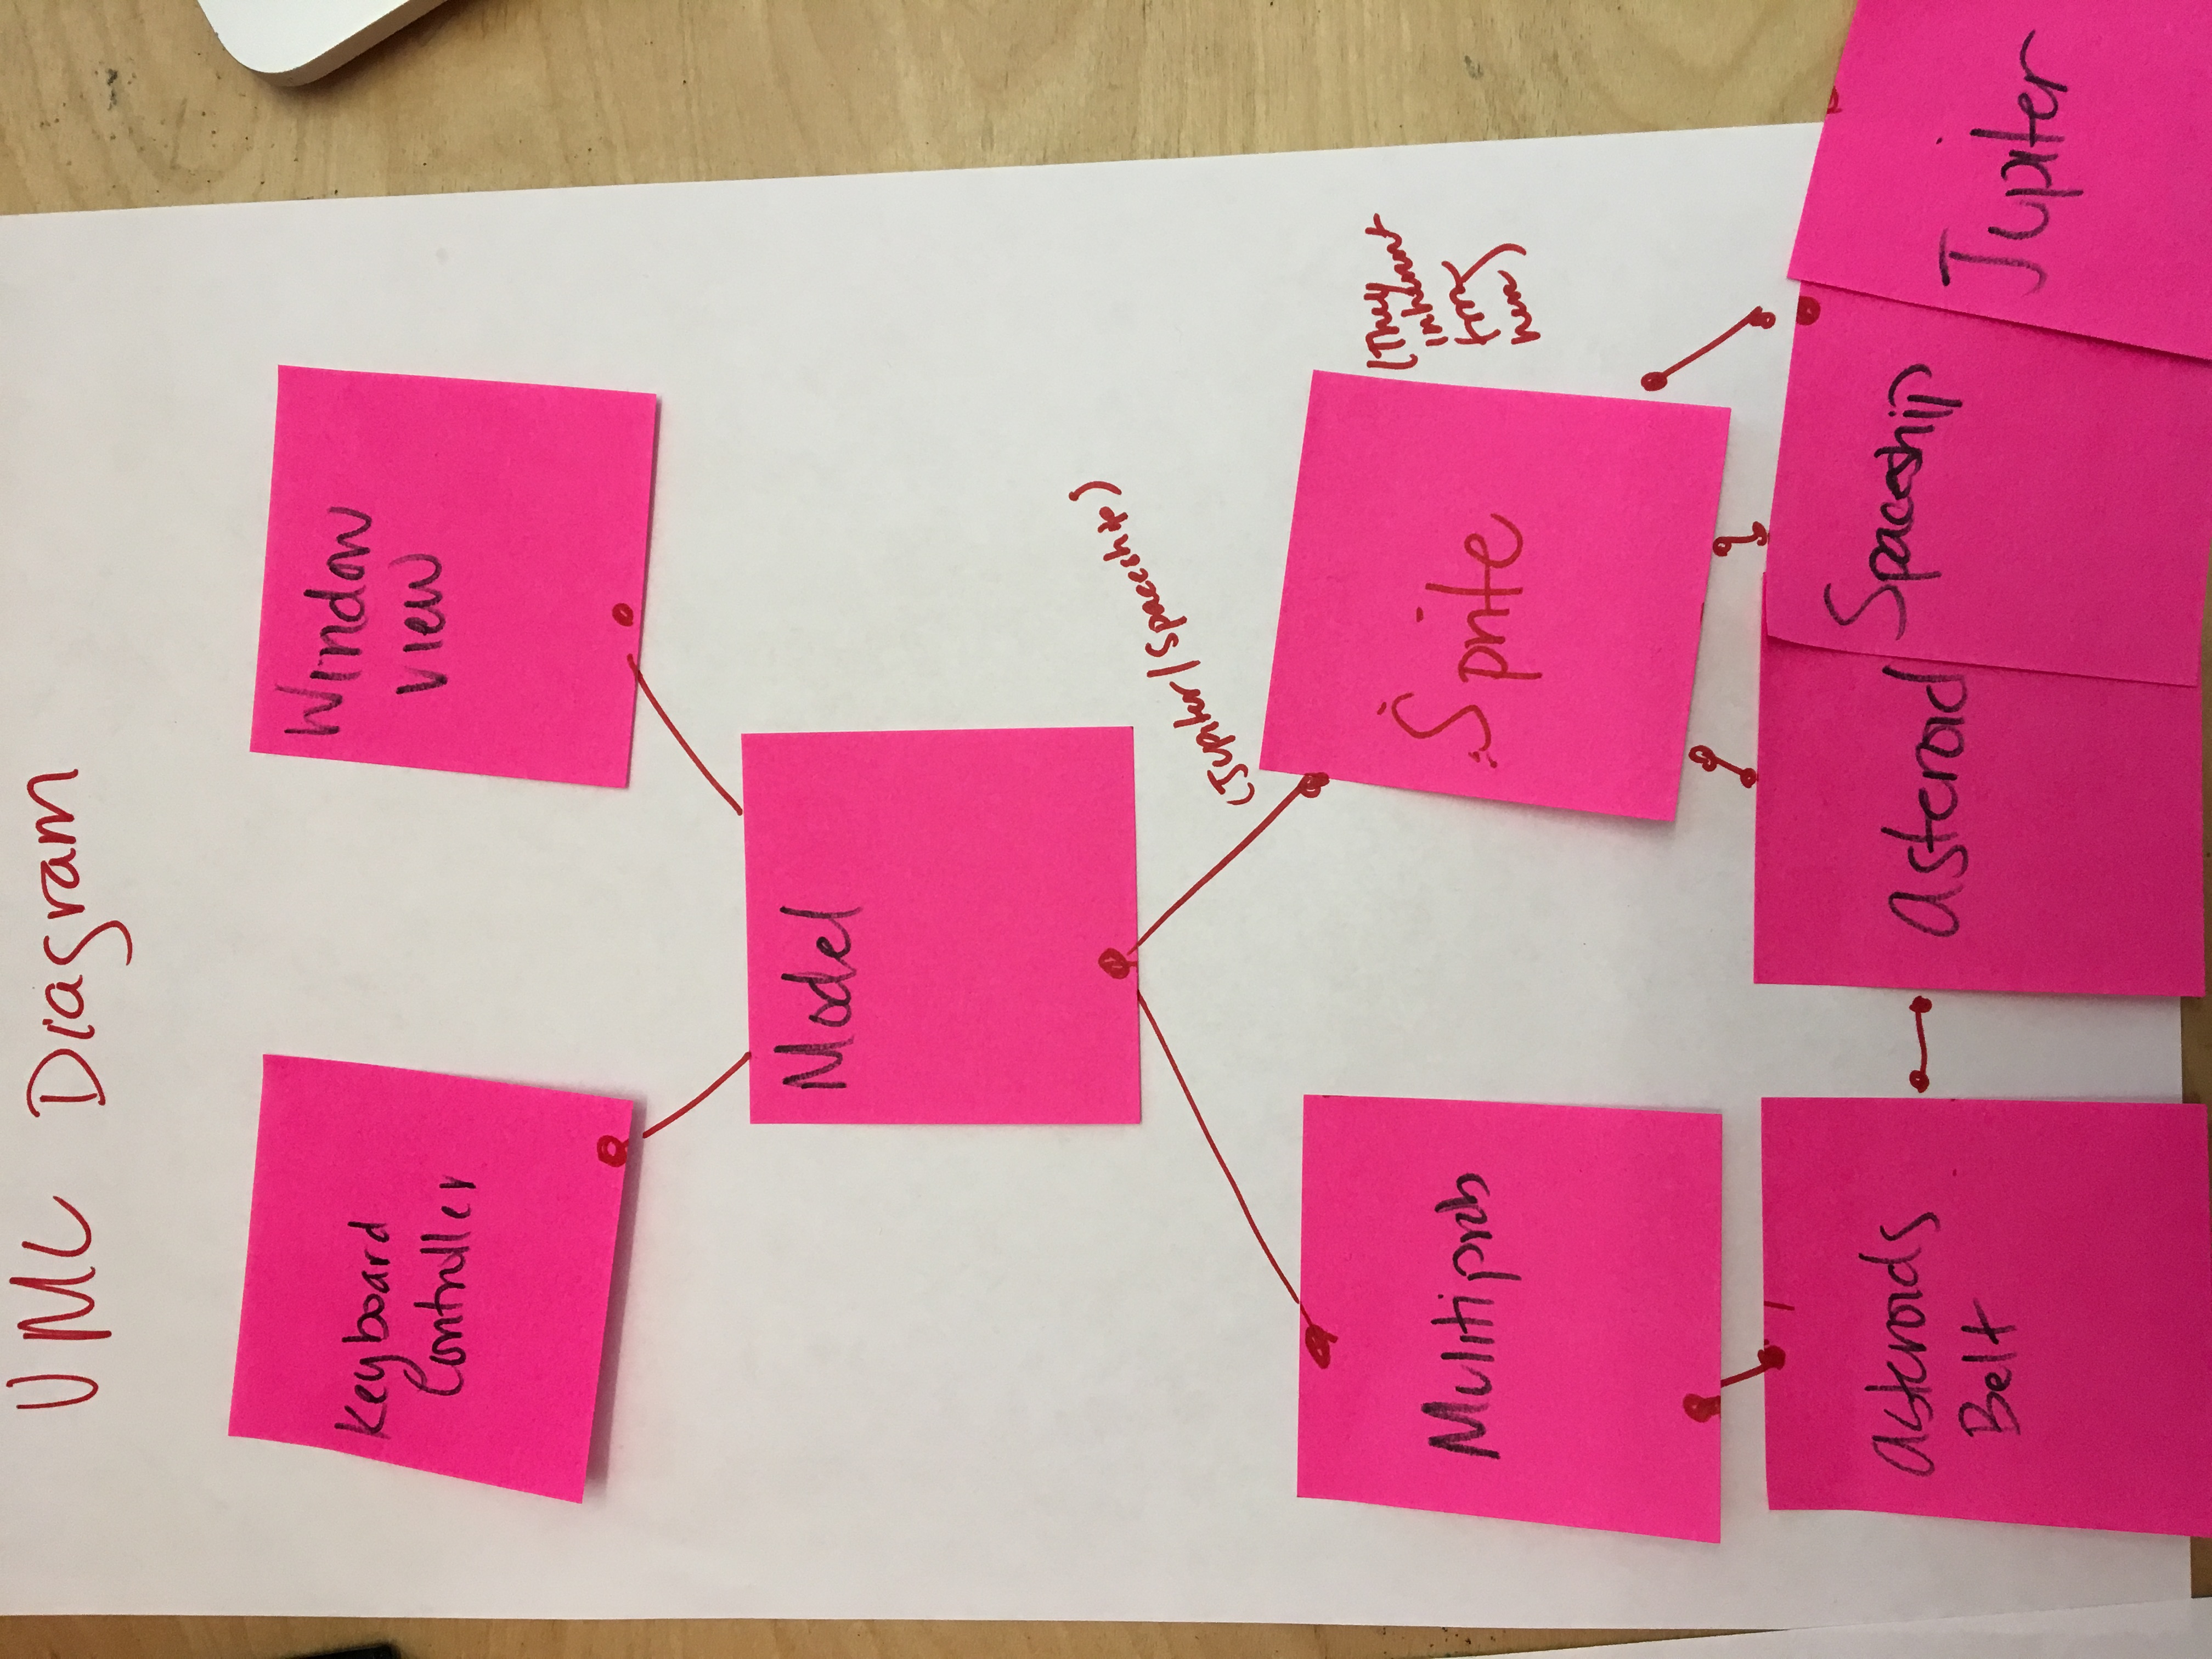 UML Diagram
Keyboard
Controller
Window
View
Model
(Jupiter/Spaceship)
Multiprob
Sprite
(They
inherent
from
here)
asteroids
Belt
asteroid
Spaceship
Jupiter